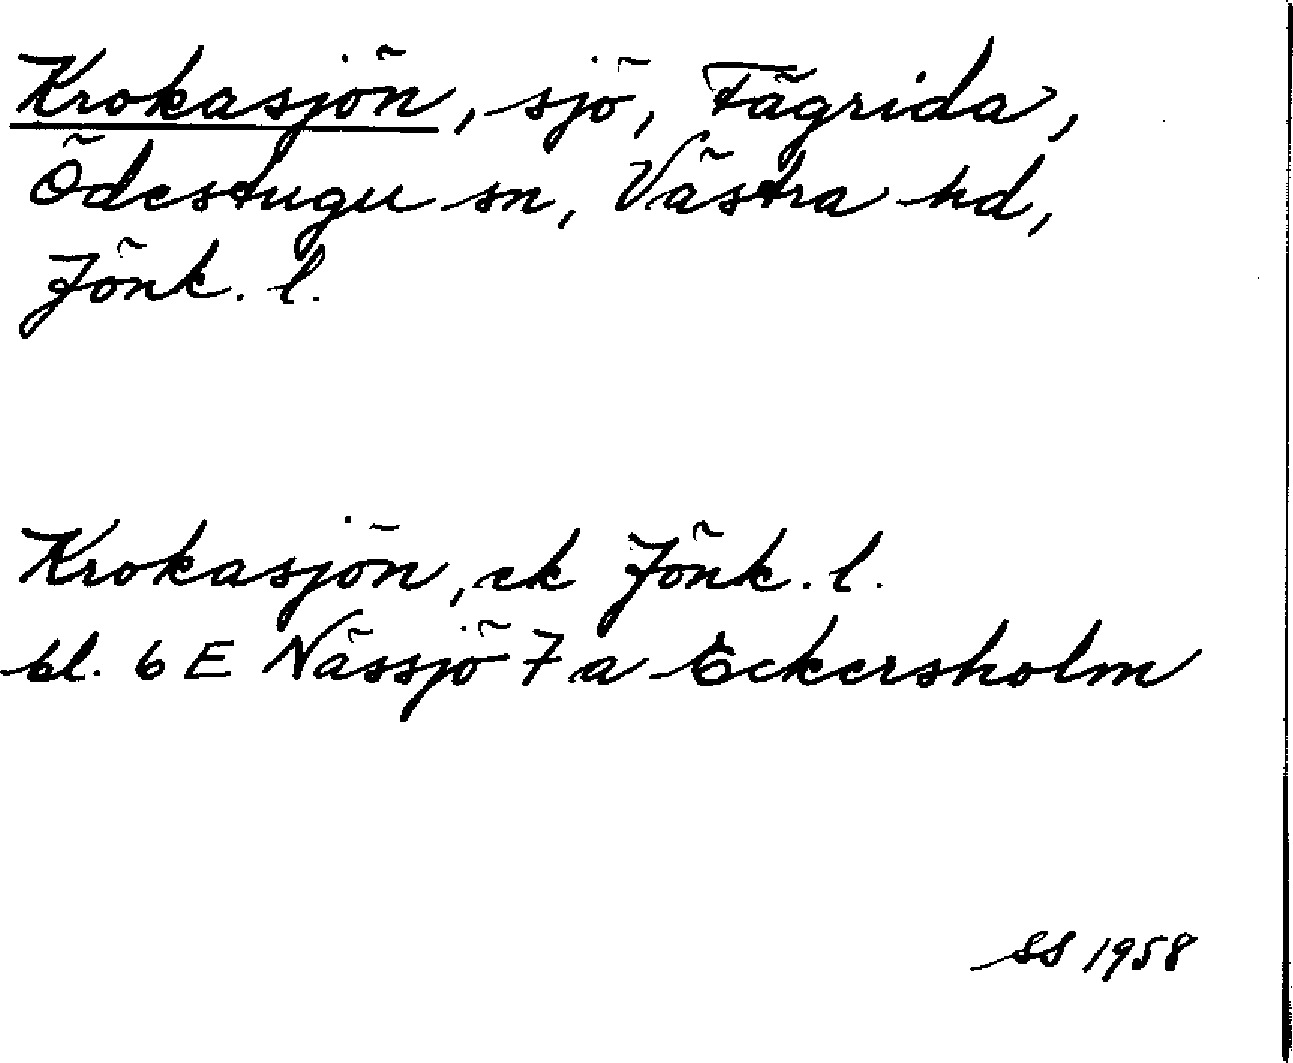 Krokasjön, sjö, Fägrida,
Ödestugu sn, Västra hd,
Jönk. l.
Krokasjön, ek Jönk. l.
bl. 6 E Nässjö 7 a Eckersholm
SS 1958